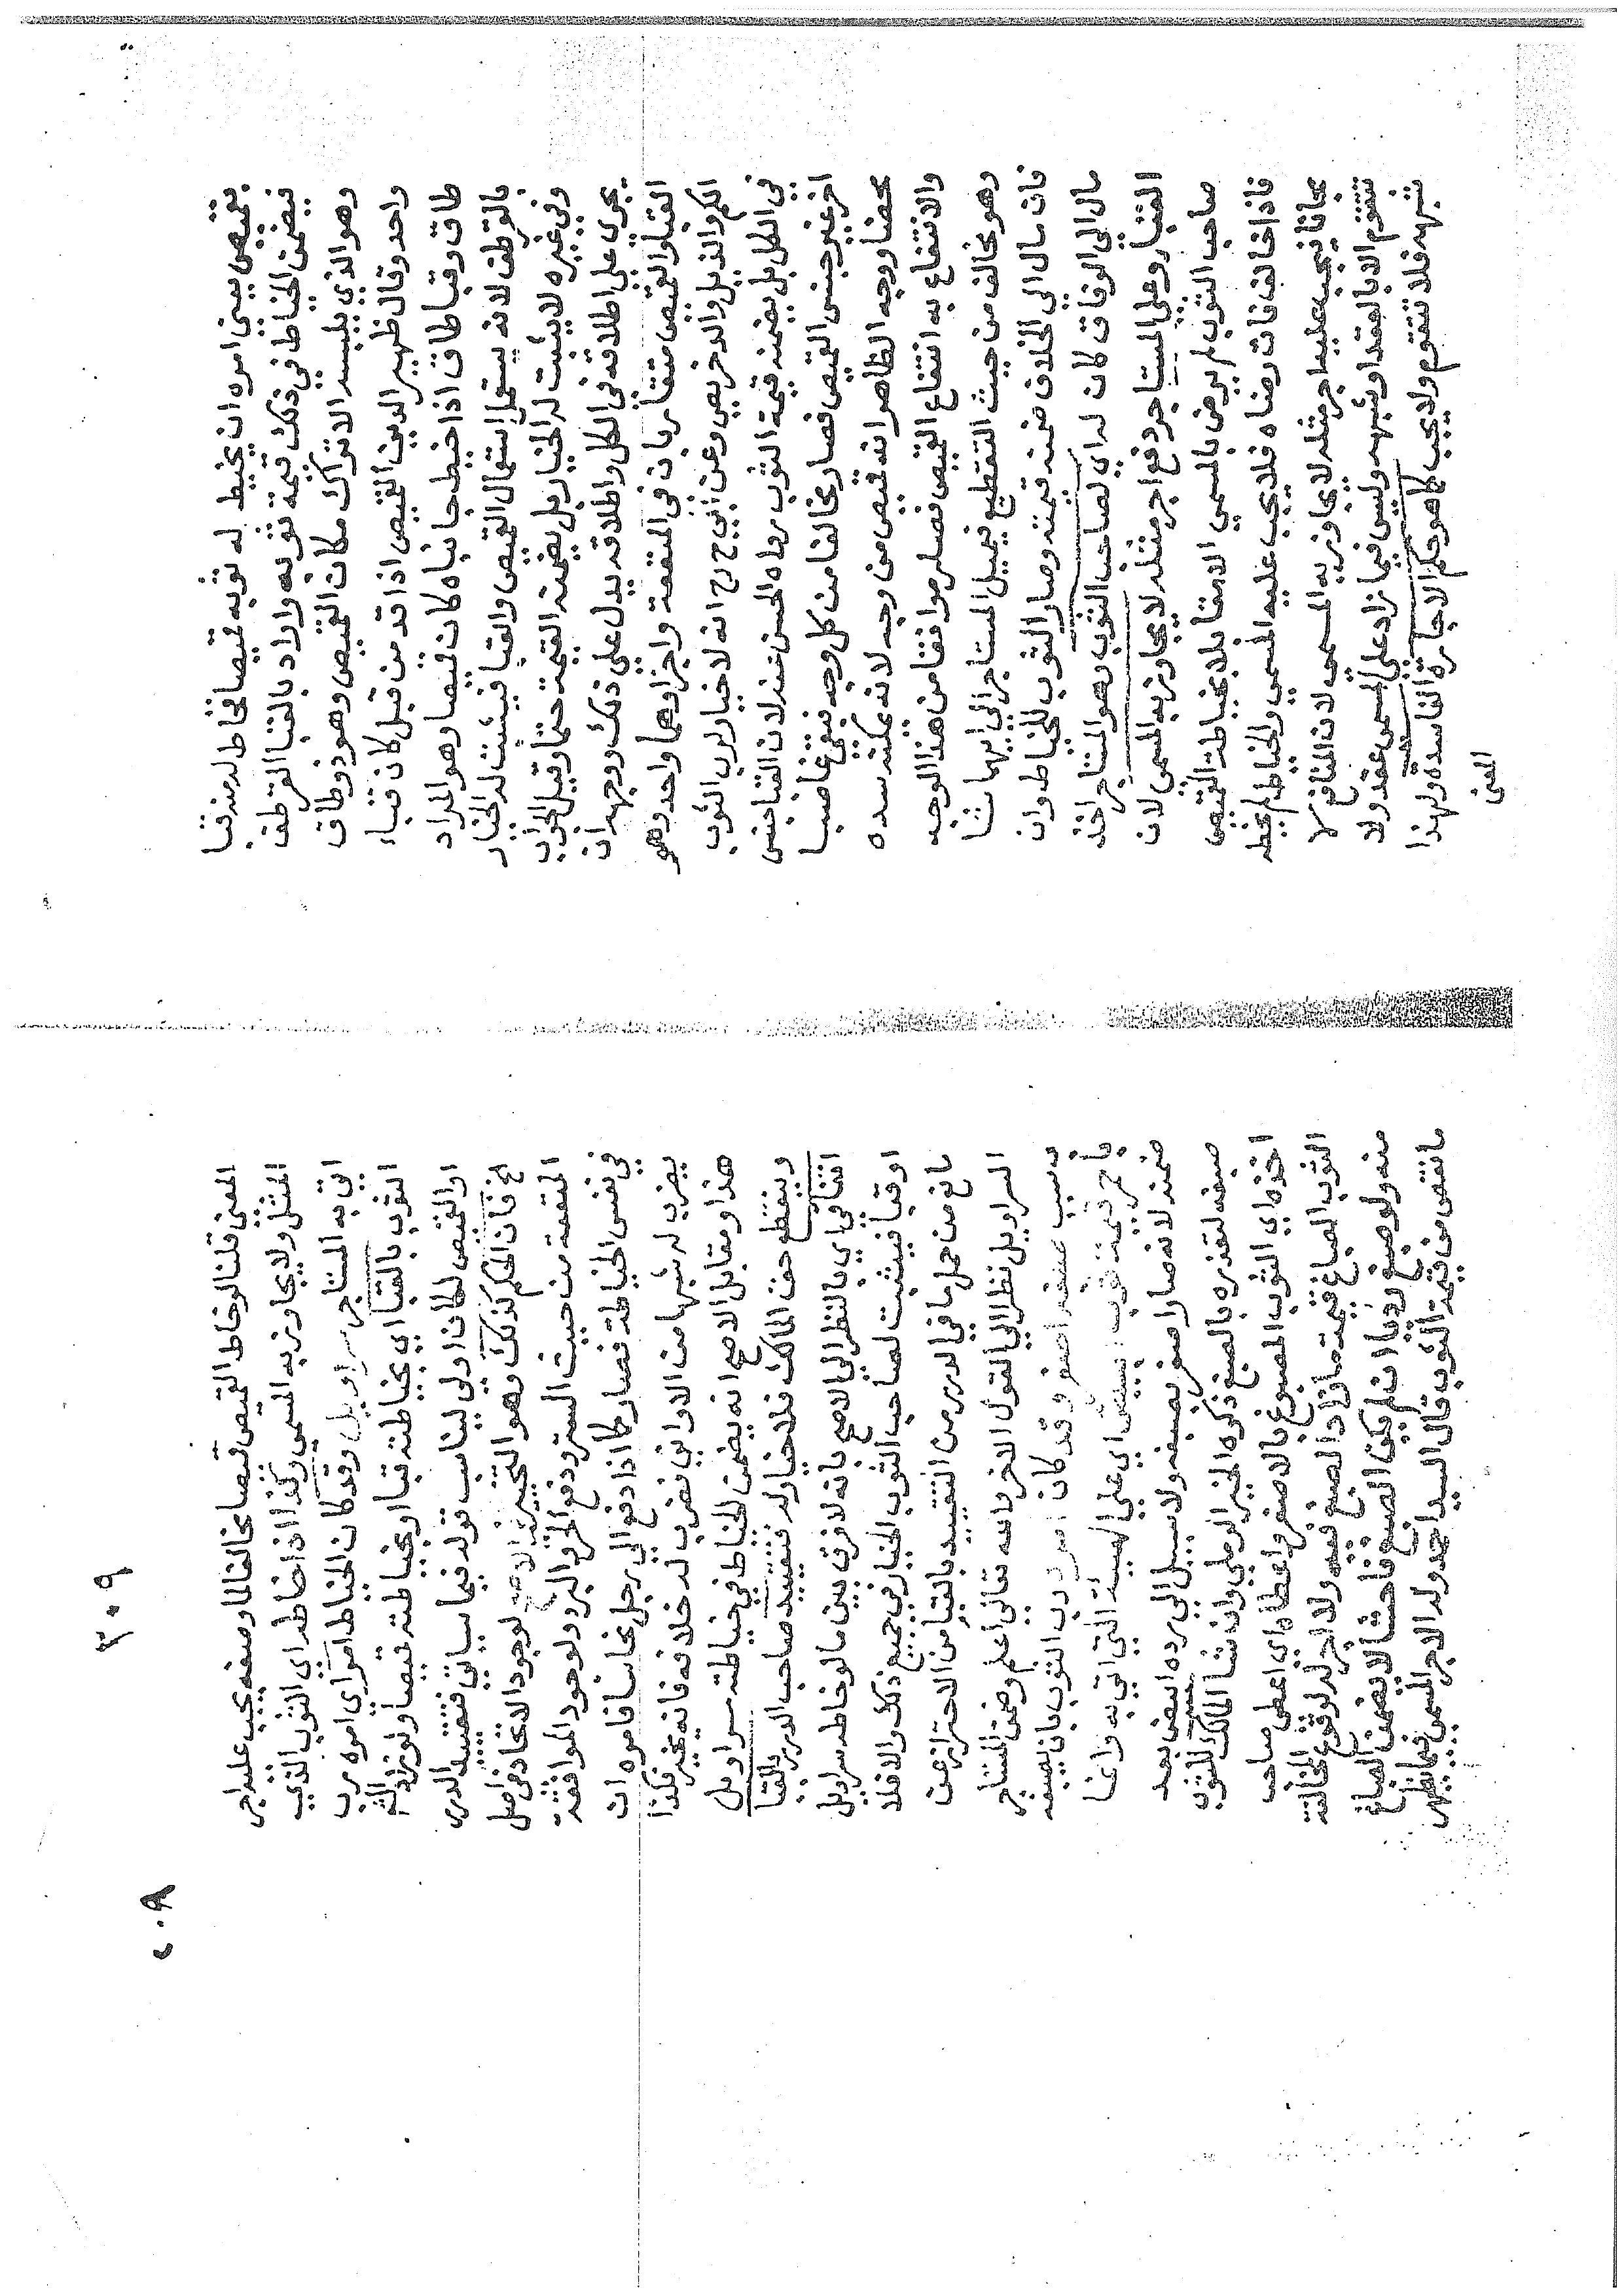 بقميص يعني امره ان يخيط له ثوبه قميصا فخاط له منه قبا
فيضمن الخياط في ذلك قيمة ثوبه واراد بالقبا القرطق
وهو الذي يلبسه الاتراك مكان القميص وهو ذو طاق
واحد وقال ظهير الدين القميص اذا قد من قبل كان قباء
طاق وقبا طاق اذا خيط جانباه كان قميصا وهو المراد
بالقرطق لانه يستعمل استعمال القميص والقبا فيثبت له الخيار
وفي غيره لا يثبت له الخيار بل يضمنه القيمة حتما وقيل الجواب
يجري على اطلاقه في الكل واطلاقه يدل على ذلك ووجهه ان
القبا والقميص متقاربان في المنفعة واجزاوهما واحد وهو
الكم والذيل والدخريص وعن ابي ح رح انه لا خيار لرب الثوب
في الكل بل يضمنه قيمة الثوب رواه الحسن عنه لان القبا جنس
اخر غير جنس القميص فصار مخالفا من كل وجه فبقي غاصبا
محضا ووجه الظاهر انه قميص من وجه لانه يمكنه سده
والانتفاع به انتفاع القميص فصار موافقا من هذا الوجه
وهو مخالف من حيث التقطيع فيميل المستاجر الى ايهما شا
فان مال الى الخلاف ضمنه قيمته وصار الثوب للخياط وان
مال الى الوفاق كان له اي لصاحب الثوب وهو المستاجر اخذ
القبا وعلى المستاجر دفع اجر مثله لا يجاوز به المسمى لان
صاحب الثوب لم يرض بالمسمى الا مقابلا بخياطة القميص
فاذا خالف فات رضاه فلا يجب عليه المسمى والخياط لم يخطه
مجانا فيجب عليه اجر مثله لا يجاوز به المسمى لان المنافع لا
تتقوم الا بالعقد او شبهه وليس فيما زاد على المسمى عقد ولا
شبهه فلا تتقوم ولا يجب كما هو حكم الاجارة الفاسده ولهذا
المعنى
٣٠٩
٢٠٩
المعنى قلنا لو خاط القميص قميصا مخالفا لما وصفه يجب عليه اجر
المثل ولا يجاوز به المسمى وكذا اذا خاطه اي الثوب الذي
اتى به المستاجر سراويل وقد كان الخياط امر اي امره رب
الثوب بالقبا اي بخياطته قبا او بخياطته قميصا ولو زاد
او القميص لكان اولى ليناسب قوله فيما سياتي فتقييد الدرر
الخ فان الحكم كذلك وهو التخيير في الاصح لوجود الاتحاد في اصل
المنفعة من حيث الستر ودفع الحر والبرد ولوجود الموافقة
في نفس الخياطة فصار كما اذا دفع الى رجل نحاسا فامره ان
يضرب له شبها من الاواني فضرب له خلافه فانه يخير فكذا
هذا ومقابل الاصح انه يضمن الخياط في خياطته سراويل
وينقطع حق المالك فلا خيار له فتقييد صاحب الدرر بالقبا
اتفاقي اي بالنظر الى الاصح بانه لا فرق بين ما لو خاطه سراويل
او قبا فيثبت لصاحب الثوب الخيار في جميع ذلك والا فلا
مانع من حمل ما في الدرر من التقييد بالقبا من الاحتراز عن
السراويل نظرا الى القول الاخر والله تعالى اعلم وضمن المستاجر
بسبب صبغه اصفر وقد كان امر رب الثوب بان يصبغه
باحمر قيمة ثوب ابيض اي على الهيئة التي اتى به وانما
ضمنه لانه صار اصفر بصبغه ولا سبيل الى رده ابيض بعد
صبغه لتعذره بالصبغ ذكره الخير الرملي وان شا المالك للثوب
اخذه اي الثوب المصبوغ بالاصفر واعطاه اي اعطى صاحب
الثوب الصباغ قيمة ما زاد الصبغ فيه ولا اجر له لوقوع المخالفة
منه ولو صبغ رديا ان لم يكن الصبغ فاحشا لا يضمن الصباغ
ما نقص من قيمة الثوب قال السيد احمد وله الاجر المسمى فيما يظهر